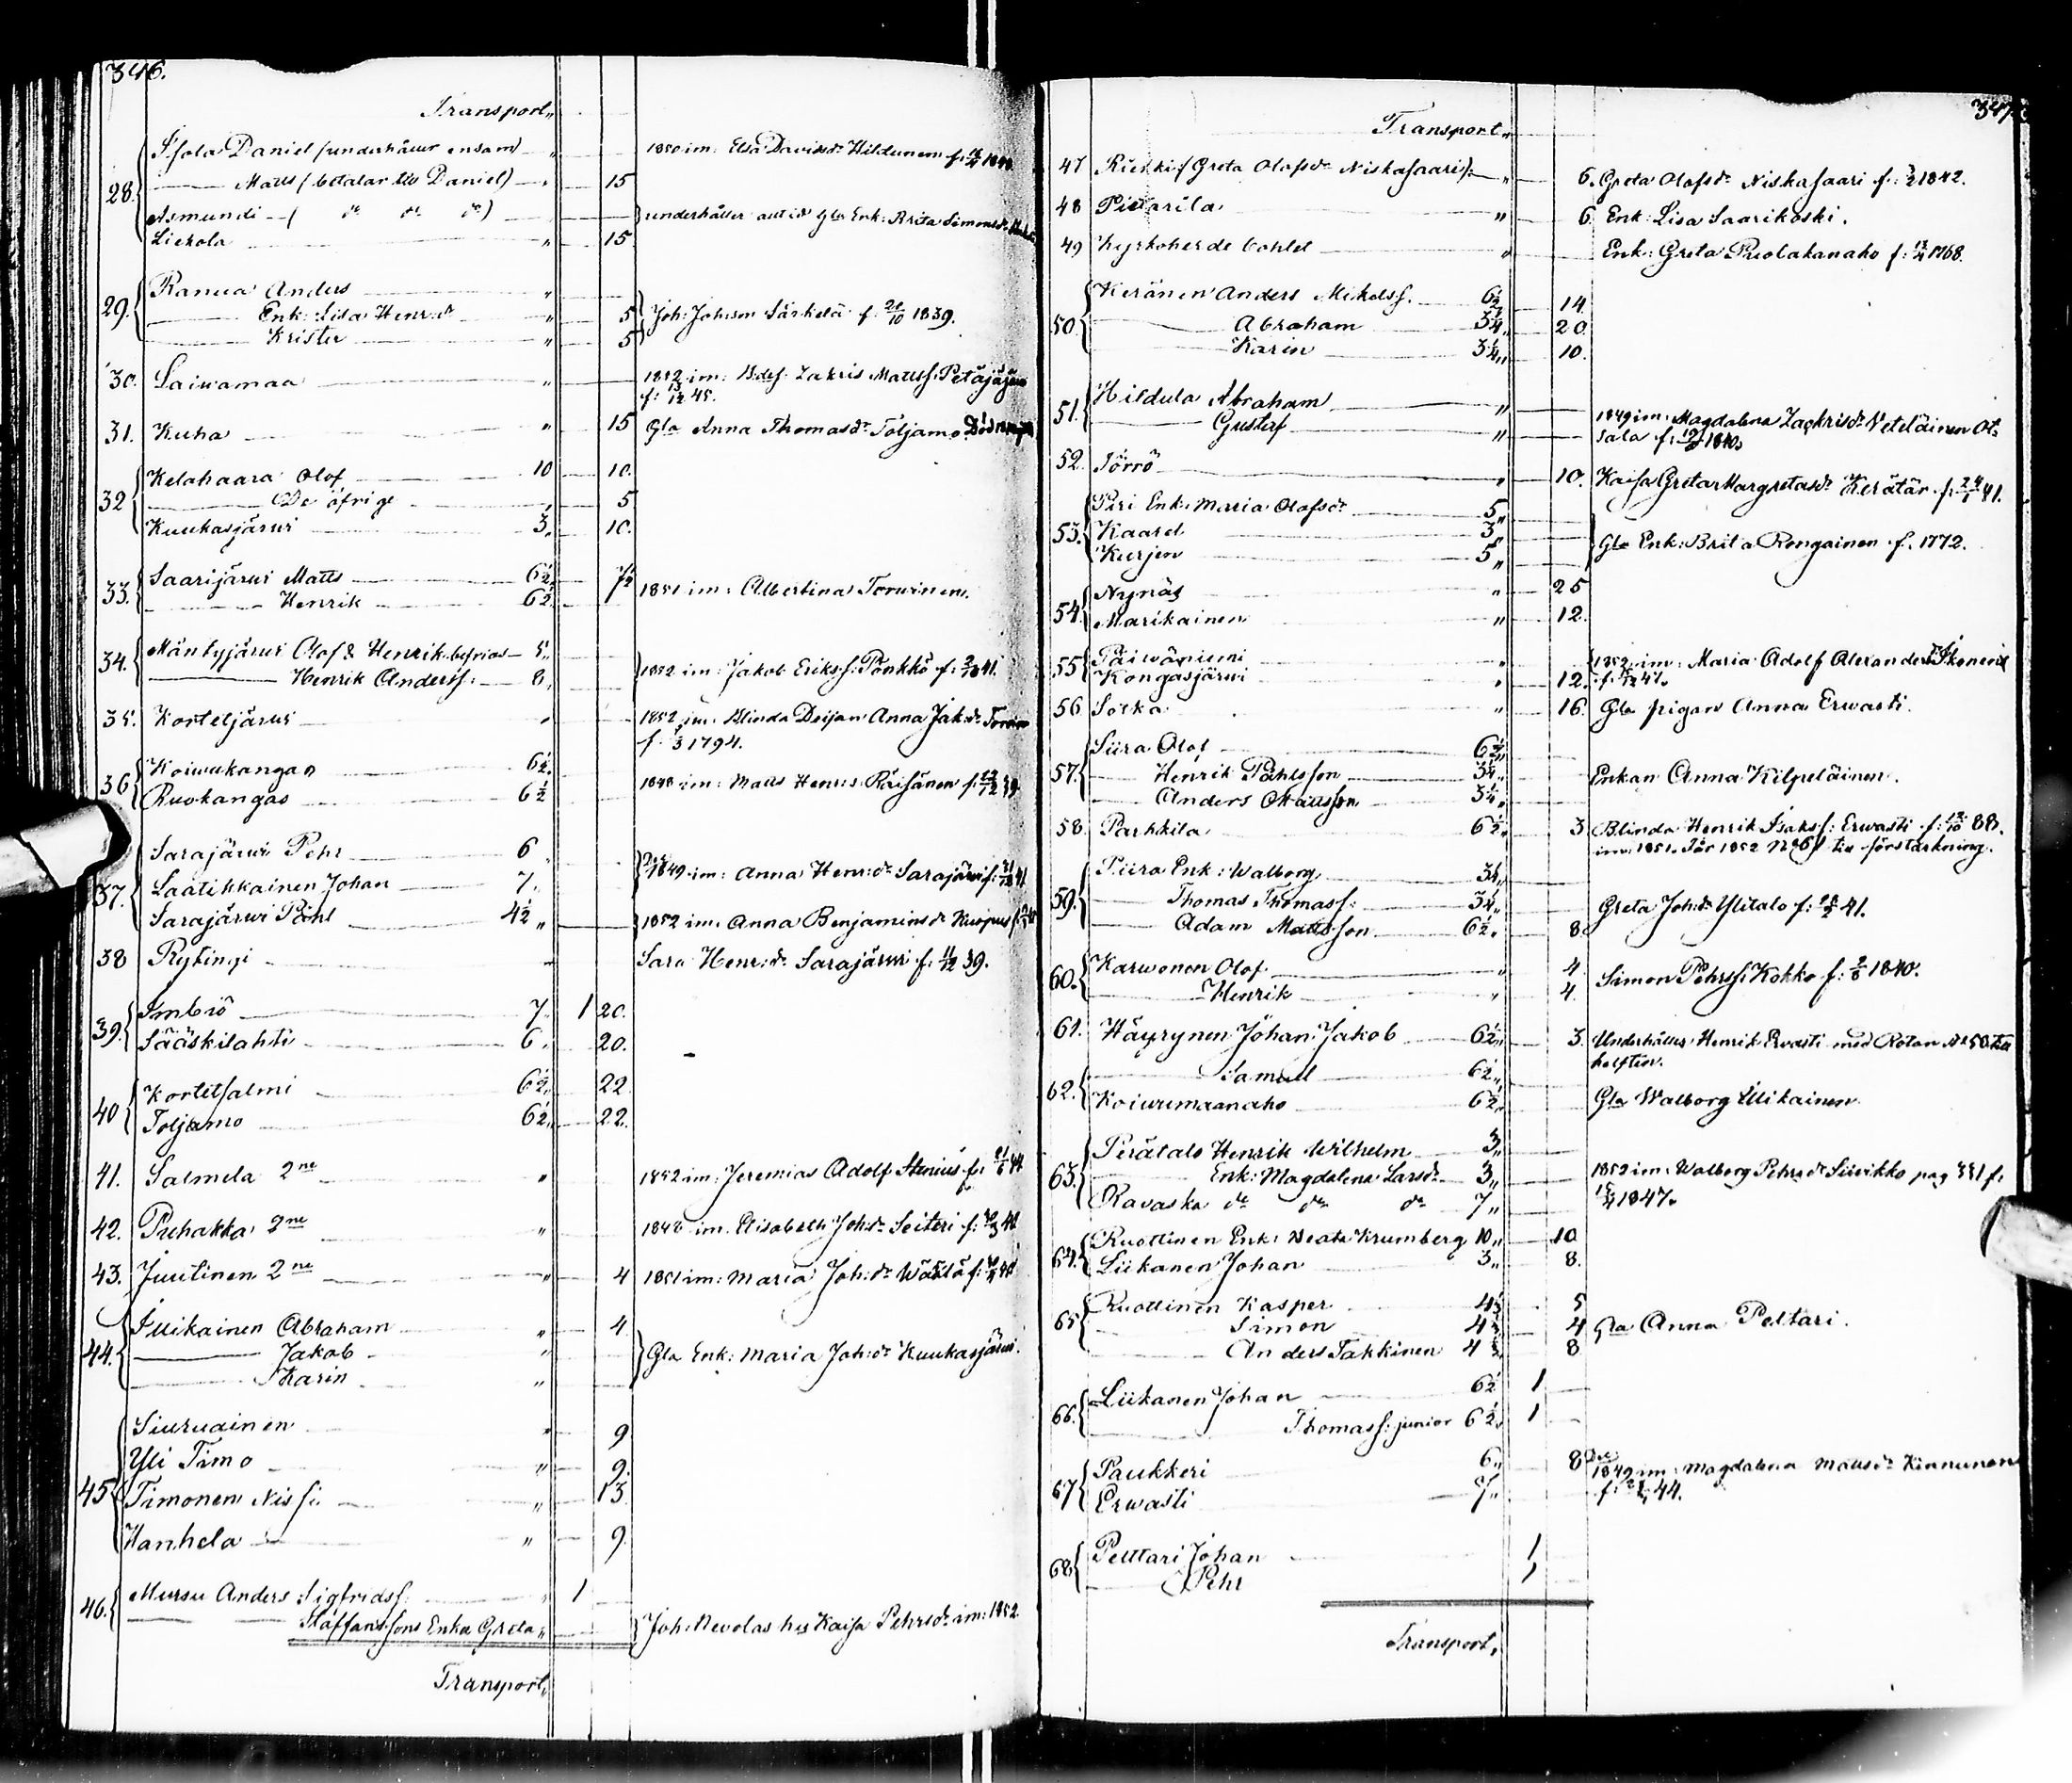 346.
Transport„
28. Isola Daniel (underhåller ensam) „ 1850 im: Elsa Davidsdr Hildunen f:
Matts (betalar till Daniel) „ 15
Asmundi ( dr dr dr) underhåller alltid Gla Enk: Brita Simonsdr
Liekola „ 15
29. Ranua Anders „
Enk: Lisa Henr:dr „ 5 Joh: Johsson Särkelä f. 21/10 1839.
Krister „ 5
30. Saiwamaa „ 1852 im: Zakris Mattsf. Petäjäjärvi
f: 13/12 45.
31. Kuha „ 15 Gla Anna Thomasdr Toljamo
32 Kelahaara Olof 10 10.
De öfrige „ 5
Kuukasjärwi 3. 10.
33. Saarijärwi Matts 6½ 7½ 1851 im: Albertina Torwinen.
Henrik 6½
34. Mäntyjärwi Olof & Henrik 5.
Henrik Andersf: 8. 1852 im: Jakob Eriksf: Pönkkö f: 41.
35. Korteljärwi „ 1852 im: Blinda Anna Jak:dr
f. 1794.
36 Koiwukangas 6½
Ruokangas 6½ 1848 im: Matts Henr:s: Räisänen f: 39
37. Sarajärwi Pehr 6 .
Laatikkainen Johan 7. 1849 im: Anna Henr:dr Sarajärwi f: 41
Sarajärwi Påhl 4½ „ 1852 im: Anna Benjaminsdr
38 Rytingi Sara Henr:dr Sarajärwi f. 11/12 39.
39. Imbiö 7. 1 20.
Sääskilahti 6 . 20.
40 Kortelsalmi 6½ 22.
Toljamo 6½ 22.
41. Salmela 2ne „ 1852 im: Jeremias Adolf Stenius f: 44
42. Puhakka 2ne „ 1848 im. Elisabeth Joh:dr Seiteri f:
43. Juutinen 2ne „ 4 1851 im: Maria Joh:dr Wäälä f:
44. Illikainen Abraham „ 4.
Jakob „ Gla Enk: Maria Joh:dr Kuukasjärwi.
Karin „
45 Siuruainen „ 9
Yli Timo „ 9.
Timonen „ 13.
Hanhela „ 9.
46. Mursu Anders Sigfridsf: 1
Staffansfons Enka Greta „ Joh: hus Kaisa Pehrsdr im: 1852.
Transport„
347.
Transport„
47 Riekki (Greta Olofsdr Niskasaari): „ 6. Greta Olofsdr Niskasaari f: 1842.
48 Pietarila „ 6. Enk: Lisa Saarikoski.
49 Kyrkoherde bohlet „ Enk: Greta Puolakanaho f: 1768.
50. Keränen Anders Mikelsf. 6½ 14.
Abraham 3¼ 20
Karin 3¼ „ 10.
51. Hildula Abraham „
Gustaf „ 1849 im: Magdalena Zachrisdr Veteläinen
f: 1840.
52. Törrö „ 10. Kaisa Greta Margretasdr Kerätär f: 41.
53. Piri Enk: Maria Olofsdr 5„
Kaard 3„
Kurjen 5„ Gla Enk: Brita Rongainen f. 1772.
54. Nynäs „ 25
Marikainen „ 12.
55 Päiwäniemi „ 1852 im: Maria Adolf Alexandersdr Ikonen
Kongasjärwi „ 12. f. 47.
56 Sorka „ 16. Gla pigan Anna Erwasti.
57. Siira Olof 6½„
Henrik Påhlsson 3¼„ Enkan Anna Kilpeläinen.
Anders Mattsson 3¼„
58. Parkkila 6½„ 3 Blinda Henrik Isaksf: Erwasti f: 88.
im: 1851. för 1852 № 61 till förstärkning.
59. Piira Enk: Walborg 3¼
Thomas Thomasf: 3¼„ Greta Joh:dr Ylitalo f: 41.
Adam Mattsson 6½. 8.
60. Karwonen Olof „ 4. Simon Pehrsf: Kokko f: 1840.
Henrik „ 4.
61. Häyrynen Johan Jakob 6½„ 3. Underhåller Henrik Erwasti med Rotan № 58 till
helften.
62. Samuel 6½„
Koiwumaanaho 6½ Gla Walborg Illikainen
63. Perätalo Henrik Wilhelm 3„
Enk: Magdalena Larsdr 3„ 1852 im: Walborg Pehrsdr Siirikko pag 331 f:
Ravaska dr dr dr 7„ 1847.
64. Ruottinen Enk: Beata Krumberg 10„ 10
Liikanen Johan 3„ 8.
65 Ruottinen Kasper 4⅓ 5
Simon 4⅓ 4 Gla Anna Peltari.
Anders Takkinen 4⅓ 8
66. Liikanen Johan 6½ 1
Thomasf: junior 6½. 1
67 Paukkeri 6„ 8 1849 im: Magdalena Mattsdr Kinnunen
Erwasti 7„ f: 44.
68. Pelttari Johan 1
Pehr 1
Transport„